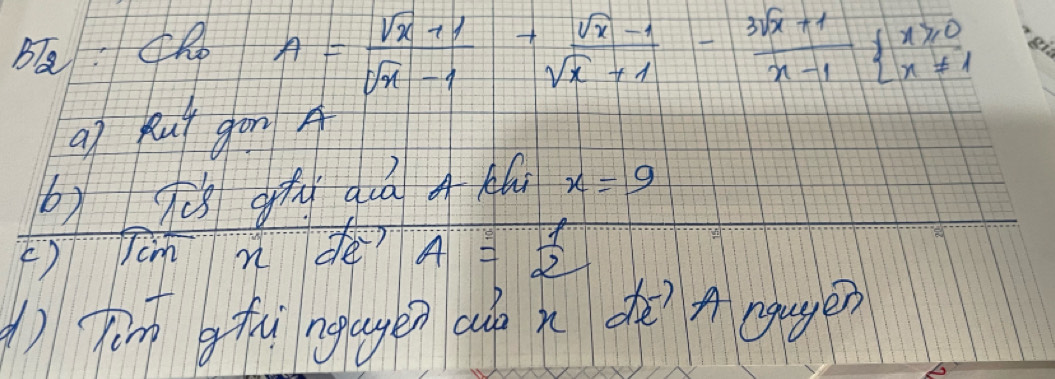 BT2: Cho A = (√x + 1)/(√x - 1) + (√x - 1)/(√x + 1) - (3√x + 1)/(x - 1) { x ≥ 0 x ≠ 1
a) Rút gọn A
b) gtrị của A khi x = 9
c) Tìm x để A = 1/2
d) Tìm gtrị nguyên của x để A nguyên